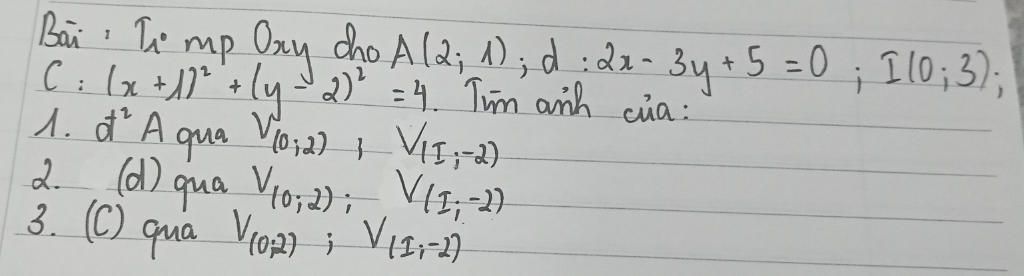 Bài : Tr mp Oxy cho A(2; 1) ; d : 2x - 3y + 5 = 0 ; I(0; 3);
C : (x + 1)² + (y - 2)² = 4. Tìm ảnh của:
1. đ² A qua V(0;2) ; V(I;-2)
2. (d) qua V(0;2) ; V(I;-2)
3. (C) qua V(0;2) ; V(I;-2)